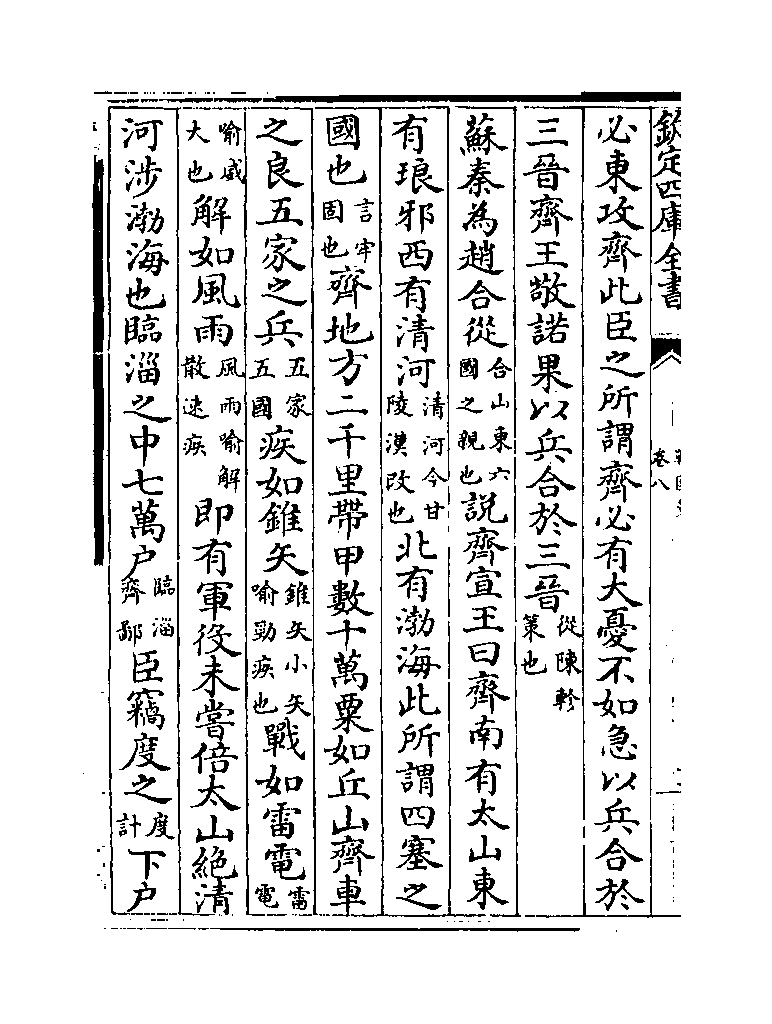 欽定四庫全書
卷八
必東攻齊此臣之所謂齊必有大憂不如急以兵合於
三晉齊王敬諾果以兵合於三晉從陳軫策也
蘇秦為趙合從合山東六國之親也說齊宣王曰齊南有太山東
有琅邪西有清河清河今甘陵漢改也北有渤海此所謂四塞之
國也言牢固也齊地方二千里帶甲數十萬粟如丘山齊車
之良五家之兵五家五國疾如錐矢錐矢小矢喻勁疾也戰如雷電雷電
喻威大也解如風雨風雨喻解散速疾即有軍役未嘗倍太山絕清
河涉渤海也臨淄之中七萬户臨淄齊鄙臣竊度之度計下户